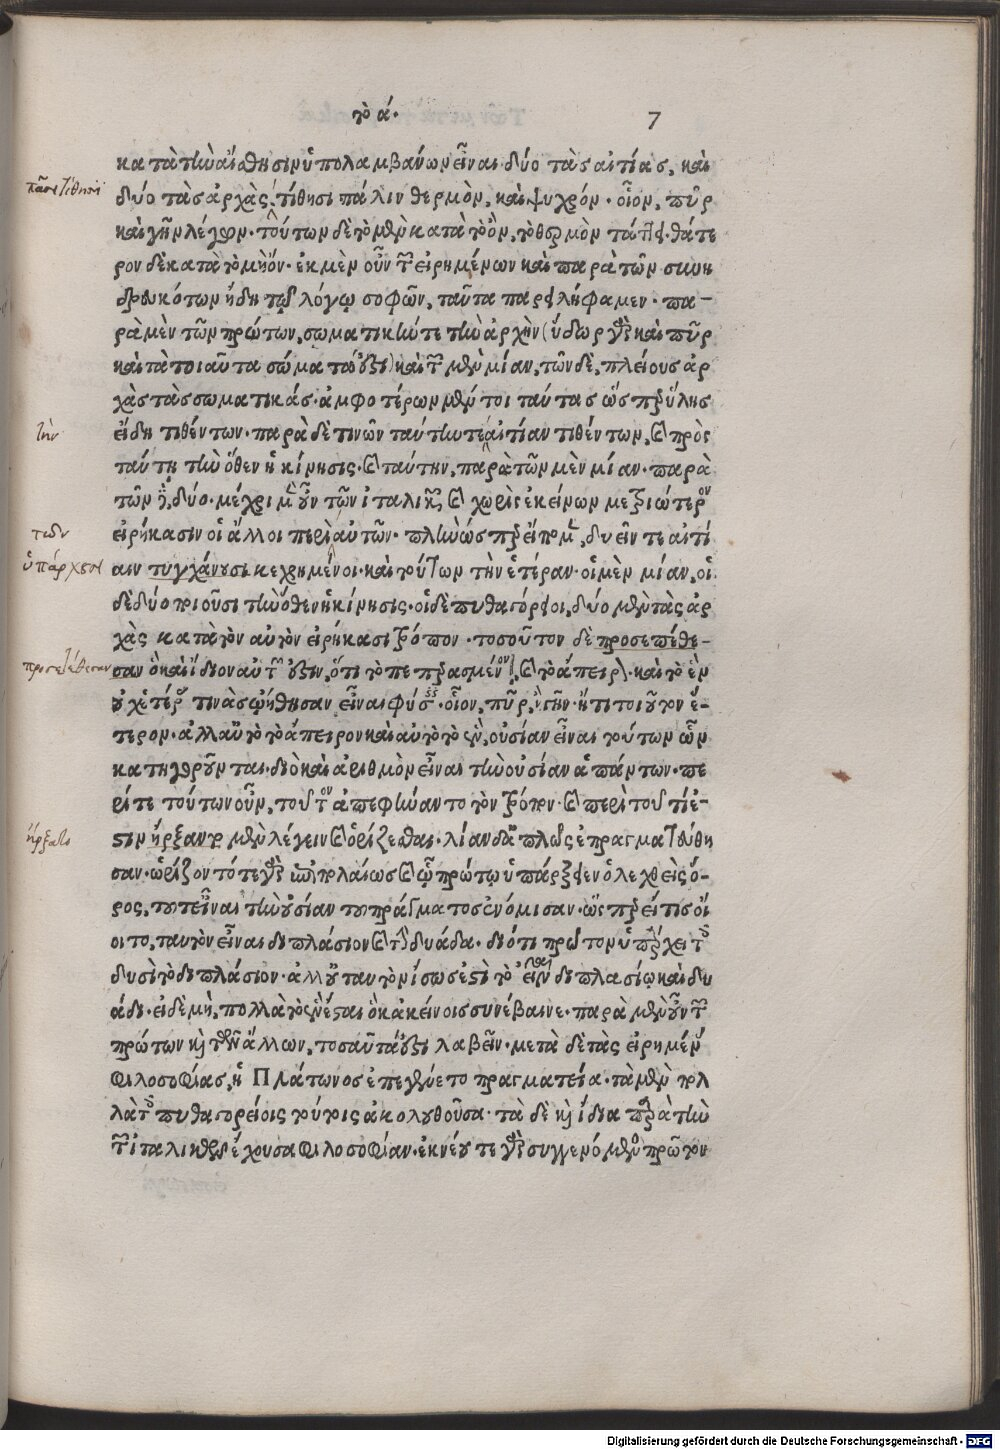 τὸ ά.
7
κατὰ τὴν αἴσθησιν ὑπολαμβάνων εἶναι, δύο τὰς αἰτίας, καὶ
πᾶσι τίθησι
δύο τὰς ἀρχὰς, τίθησι πάλιν θερμὸν, καὶ ψυχρόν· οἷον, πῦρ
καὶ γῆν λέγων· τούτων δὲ τὸ μὲν κατὰ τὸ ὂν, τὸ θερμὸν τάττει· θάτε
ρον δὲ κατὰ τὸ μὴ ὄν· ἐκ μὲν οὖν τῶν εἰρημένων καὶ παρὰ τῶν συνη
δρευκότων ἤδη τῷ λόγῳ σοφῶν, ταῦτα παρειλήφαμεν· πα-
ρὰ μὲν τῶν πρώτων, σωματικήν τε τὴν ἀρχὴν (ὕδωρ γὰρ καὶ πῦρ
καὶ τὰ τοιαῦτα σώματά ἐστι) καὶ τῶν μὲν μίαν, τῶν δὲ, πλείους ἀρ
χὰς τὰς σωματικάς· ἀμφοτέρων μέντοι ταύτας ὡς περ ὕλης
τὴν
εἴδη τιθέντων· παρὰ δέ τινῶν ταύτην τε αἰτίαν τιθέντων, καὶ πρὸς
ταύτῃ τὴν ὅθεν ἡ κίνησις· καὶ ταύτην, παρὰ τῶν μὲν μίαν· παρὰ
τῶν δὲ, δύο· μέχρι μὲν οὖν τῶν ἰταλικῶν, καὶ χωρὶς ἐκείνων μετριώτερον
εἰρήκασιν οἱ ἄλλοι περὶ αὐτῶν· πλὴν ὡς περ εἴπομεν, δυεῖν τε αἰτί
ὑπάρχουσι
αιν τυγχάνουσι κεχρημένοι· καὶ τούτων τὴν ἑτέραν· οἱ μὲν μίαν, οἱ
δὲ δύο ποιοῦσι τὴν ὅθεν ἡ κίνησις· οἱ δὲ πυθαγόρειοι, δύο μὲν τὰς ἀρ
χὰς κατὰ τὸν αὐτὸν εἰρήκασι τρόπον· τοσοῦτον δὲ προσεπέθε-
προσετίθεσαν
σαν ὃ καὶ ἴδιον αὐτῶν ἐστιν, ὅτι τὸ πεπερασμένον, καὶ τὸ ἄπειρον· καὶ τὸ ἓν
οὐχ ἑτέρας τινὰς ᾠήθησαν εἶναι φύσεις· οἷον, πῦρ, ἢ γῆν· ἤ τι τοιοῦτον ἕ-
τερον· ἀλλ' αὐτὸ τὸ ἄπειρον καὶ αὐτὸ τὸ ἓν, οὐσίαν εἶναι τούτων ὧν
κατηγοροῦνται· διὸ καὶ ἀριθμὸν εἶναι τὴν οὐσίαν ἁπάντων· πε
ρί τε τούτων οὖν, τοῦτον ἀπεφήναντο τὸν τρόπον· καὶ περὶ τοῦ τί ἐ-
ἤρξατο
στιν ἤρξαντο μὲν λέγειν καὶ ὁρίζεσθαι· λίαν δ' ἁπλῶς ἐπραγματεύθη
σαν· ὡρίζοντό τε γὰρ ἐπιπολαίως καὶ ᾧ πρώτῳ ὑπάρξειεν ὁ λεχθεὶς ὅ-
ρος, τοῦτ' εἶναι τὴν οὐσίαν τοῦ πράγματος ἐνόμισαν· ὥς περ εἴ τις οἴ
οιτο, ταυτὸν εἶναι διπλάσιον καὶ τὴν δυάδα· διότι πρῶτον ὑπάρχει τοῖς
δυσὶ τὸ διπλάσιον· ἀλλ' οὐ ταυτὸν ἴσως ἐστὶ τὸ εἶναι διπλασίῳ καὶ δυ
άδι· εἰ δὲ μὴ, πολλὰ τὸ ἓν ἔσται ὃ κἀκείνοις συνέβαινε· παρὰ μὲν οὖν τῶν
πρώτων καὶ τῶν ἄλλων, τοσαῦτά ἐστι λαβεῖν· μετὰ δὲ τὰς εἰρημένας
φιλοσοφίας, ἡ Πλάτωνος ἐπεγένετο πραγματεία· τὰ μὲν πολ
λὰ τοῖς πυθαγορείοις τούτοις ἀκολουθοῦσα· τὰ δὲ καὶ ἴδια παρὰ τὴν
τῶν ἰταλικῶν ἔχουσα φιλοσοφίαν· ἐκ νέου τε γὰρ συγγενόμενος πρῶτον
Digitalisierung gefördert durch die Deutsche Forschungsgemeinschaft - DFG